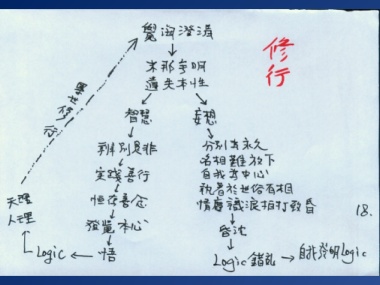 修行
覺海澄清
末那無明
遺失本性
智慧
辨別是非
實踐善行
恒存善念
證覺本心
悟
Logic
天理
人理
妄想
分別未永久
名相難放下
自我為中心
執著於世俗有相
情塵識浪相打致昏
昏沈
Logic 錯亂
自我發明Logic
18.